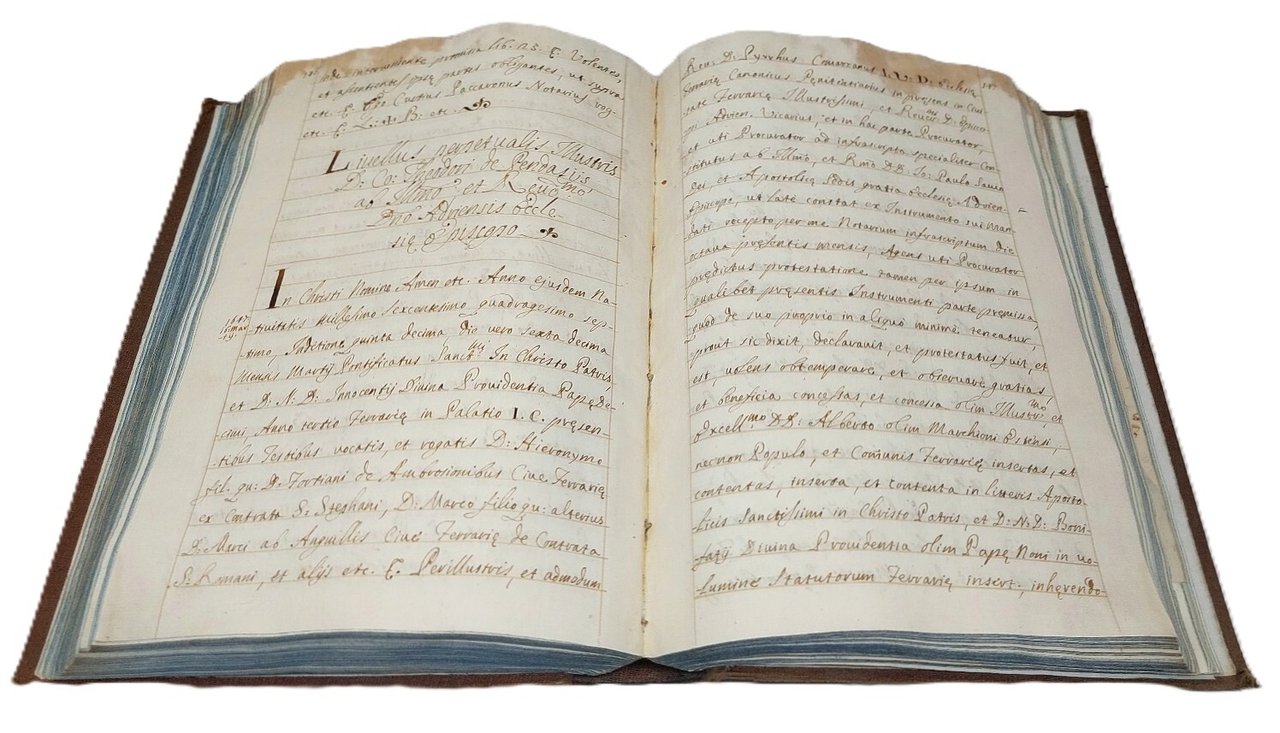 sub incommutante promitia lib. 25. C. Volentes,
et assentientes ipsę partes obligantes, ut supra
etc. E. Ego Curtius Paccaronus Notarius rog.
etc. C. L: ✢ B: etc.
Livellus perpetualis Illustris
D: Co: Theodori de Pendasiis
ab Illmo et Reuᵐᵒ
Dno Adriensis Eccle-
się Episcopo
In Christi Nomine Amen etc. Anno ejusdem Na-
1647
16 mar
tij
tivitatis Millesimo sexcentesimo quadragesimo sep-
timo, Inditione quinta decima die vero sexta decima
Mensis Martij Pontificatus Sanctᵐⁱ In Christo Patris
et D: N: D: Innocentij Divina Providentia Papę De-
cimi, Anno tertio Ferrarię in Palatio I. C. pręsen-
tibus Testibus vocatis, et rogatis D: Hieronymo
fil. qu: D: Fortiani de Ambrosionibus Cive Ferrarię
ex Contrata S: Stephani, D: Marco filio qu: alterius
D: Marci ab Anguillis Cive Ferrarię de Contrata
S: Romani, et alijs etc. E. Perillustris, et admodum
Reu: D: Pyrrhus I. U. D. Ecclesię
Ferrarię Canonicus Pęnitentiarius in pręsens in Civi-
tate Ferrarię Illustrissimi, et Reuerᵐⁱ D: Episco-
pi Adrien. Vicarius, et in hac parte Procurator,
et uti Procurator ad infrascripta specialiter Con-
stitutus ab Illmo, et Rmo DD: Io: Paulo Savio
Dei, et Apostolicę Sedis gratia Ecclesię Adrien-
Episcopo, ut late constat ex Instrumento sui Man-
dati recepto per me Notarium infrascriptum die
octava pręsentis mensis, Agens uti Procurator
prędictus protestatione tamen per ipsum in
qualibet pręsentis Instrumenti parte premissa,
quod de suo proprio in aliquo minimè teneatur,
prout sic dixit, declarauit, et protestatus fuit, et
est, volens obtemperare, et observare gratias,
et beneficia concessas, et concessa olim Illustrᵐᵒ, et
Excellᵐᵒ DD: Alberto olim Marchioni Estensi,
necnon Populo, et Comunis Ferrarię insertas, et
contentas, inserta, et contenta in litteris Aposto-
licis Sanctissimi in Christo Patris, et D: N: D: Boni-
fatij Divina Providentia olim Papę Noni in vo-
lumine Statutorum Ferrarię insert: inhęrendo